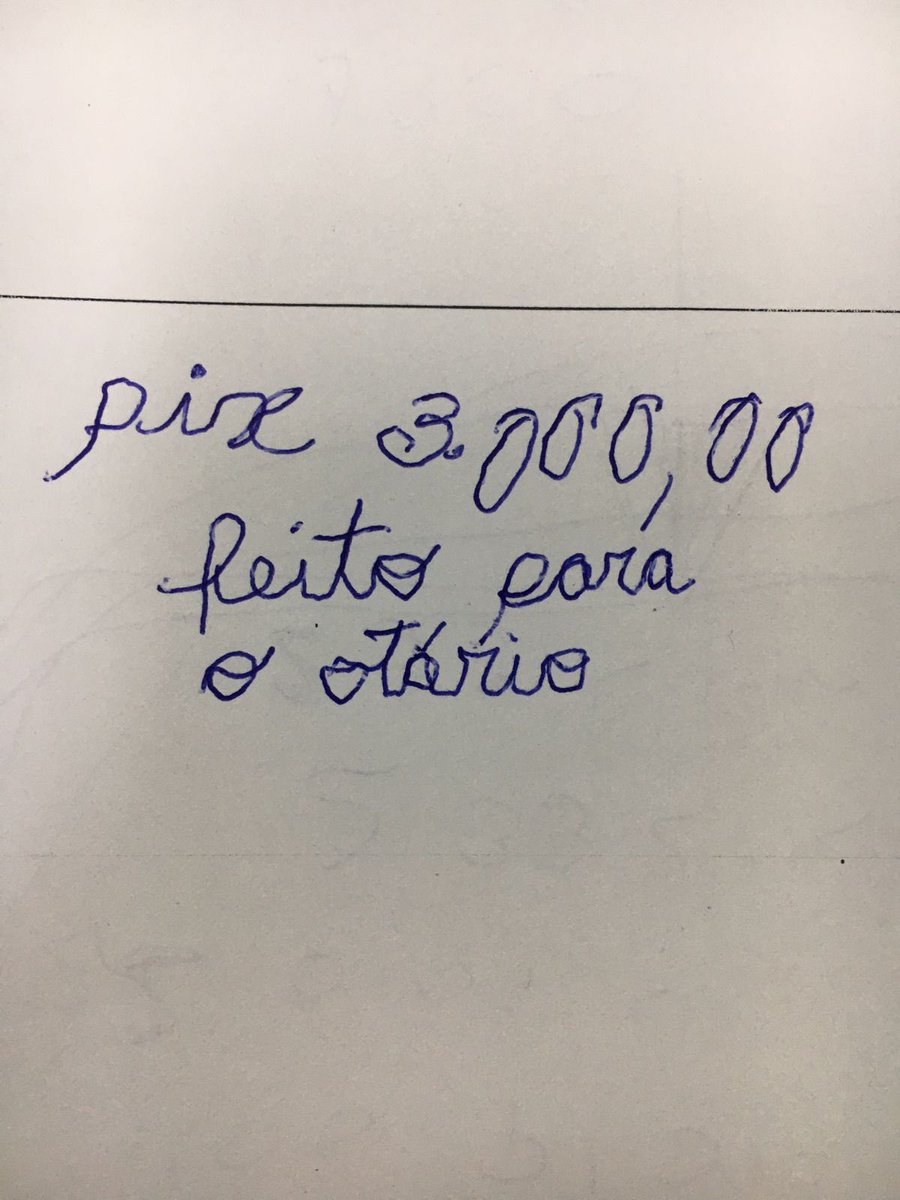 pix 3.000,00
feito para
o otário